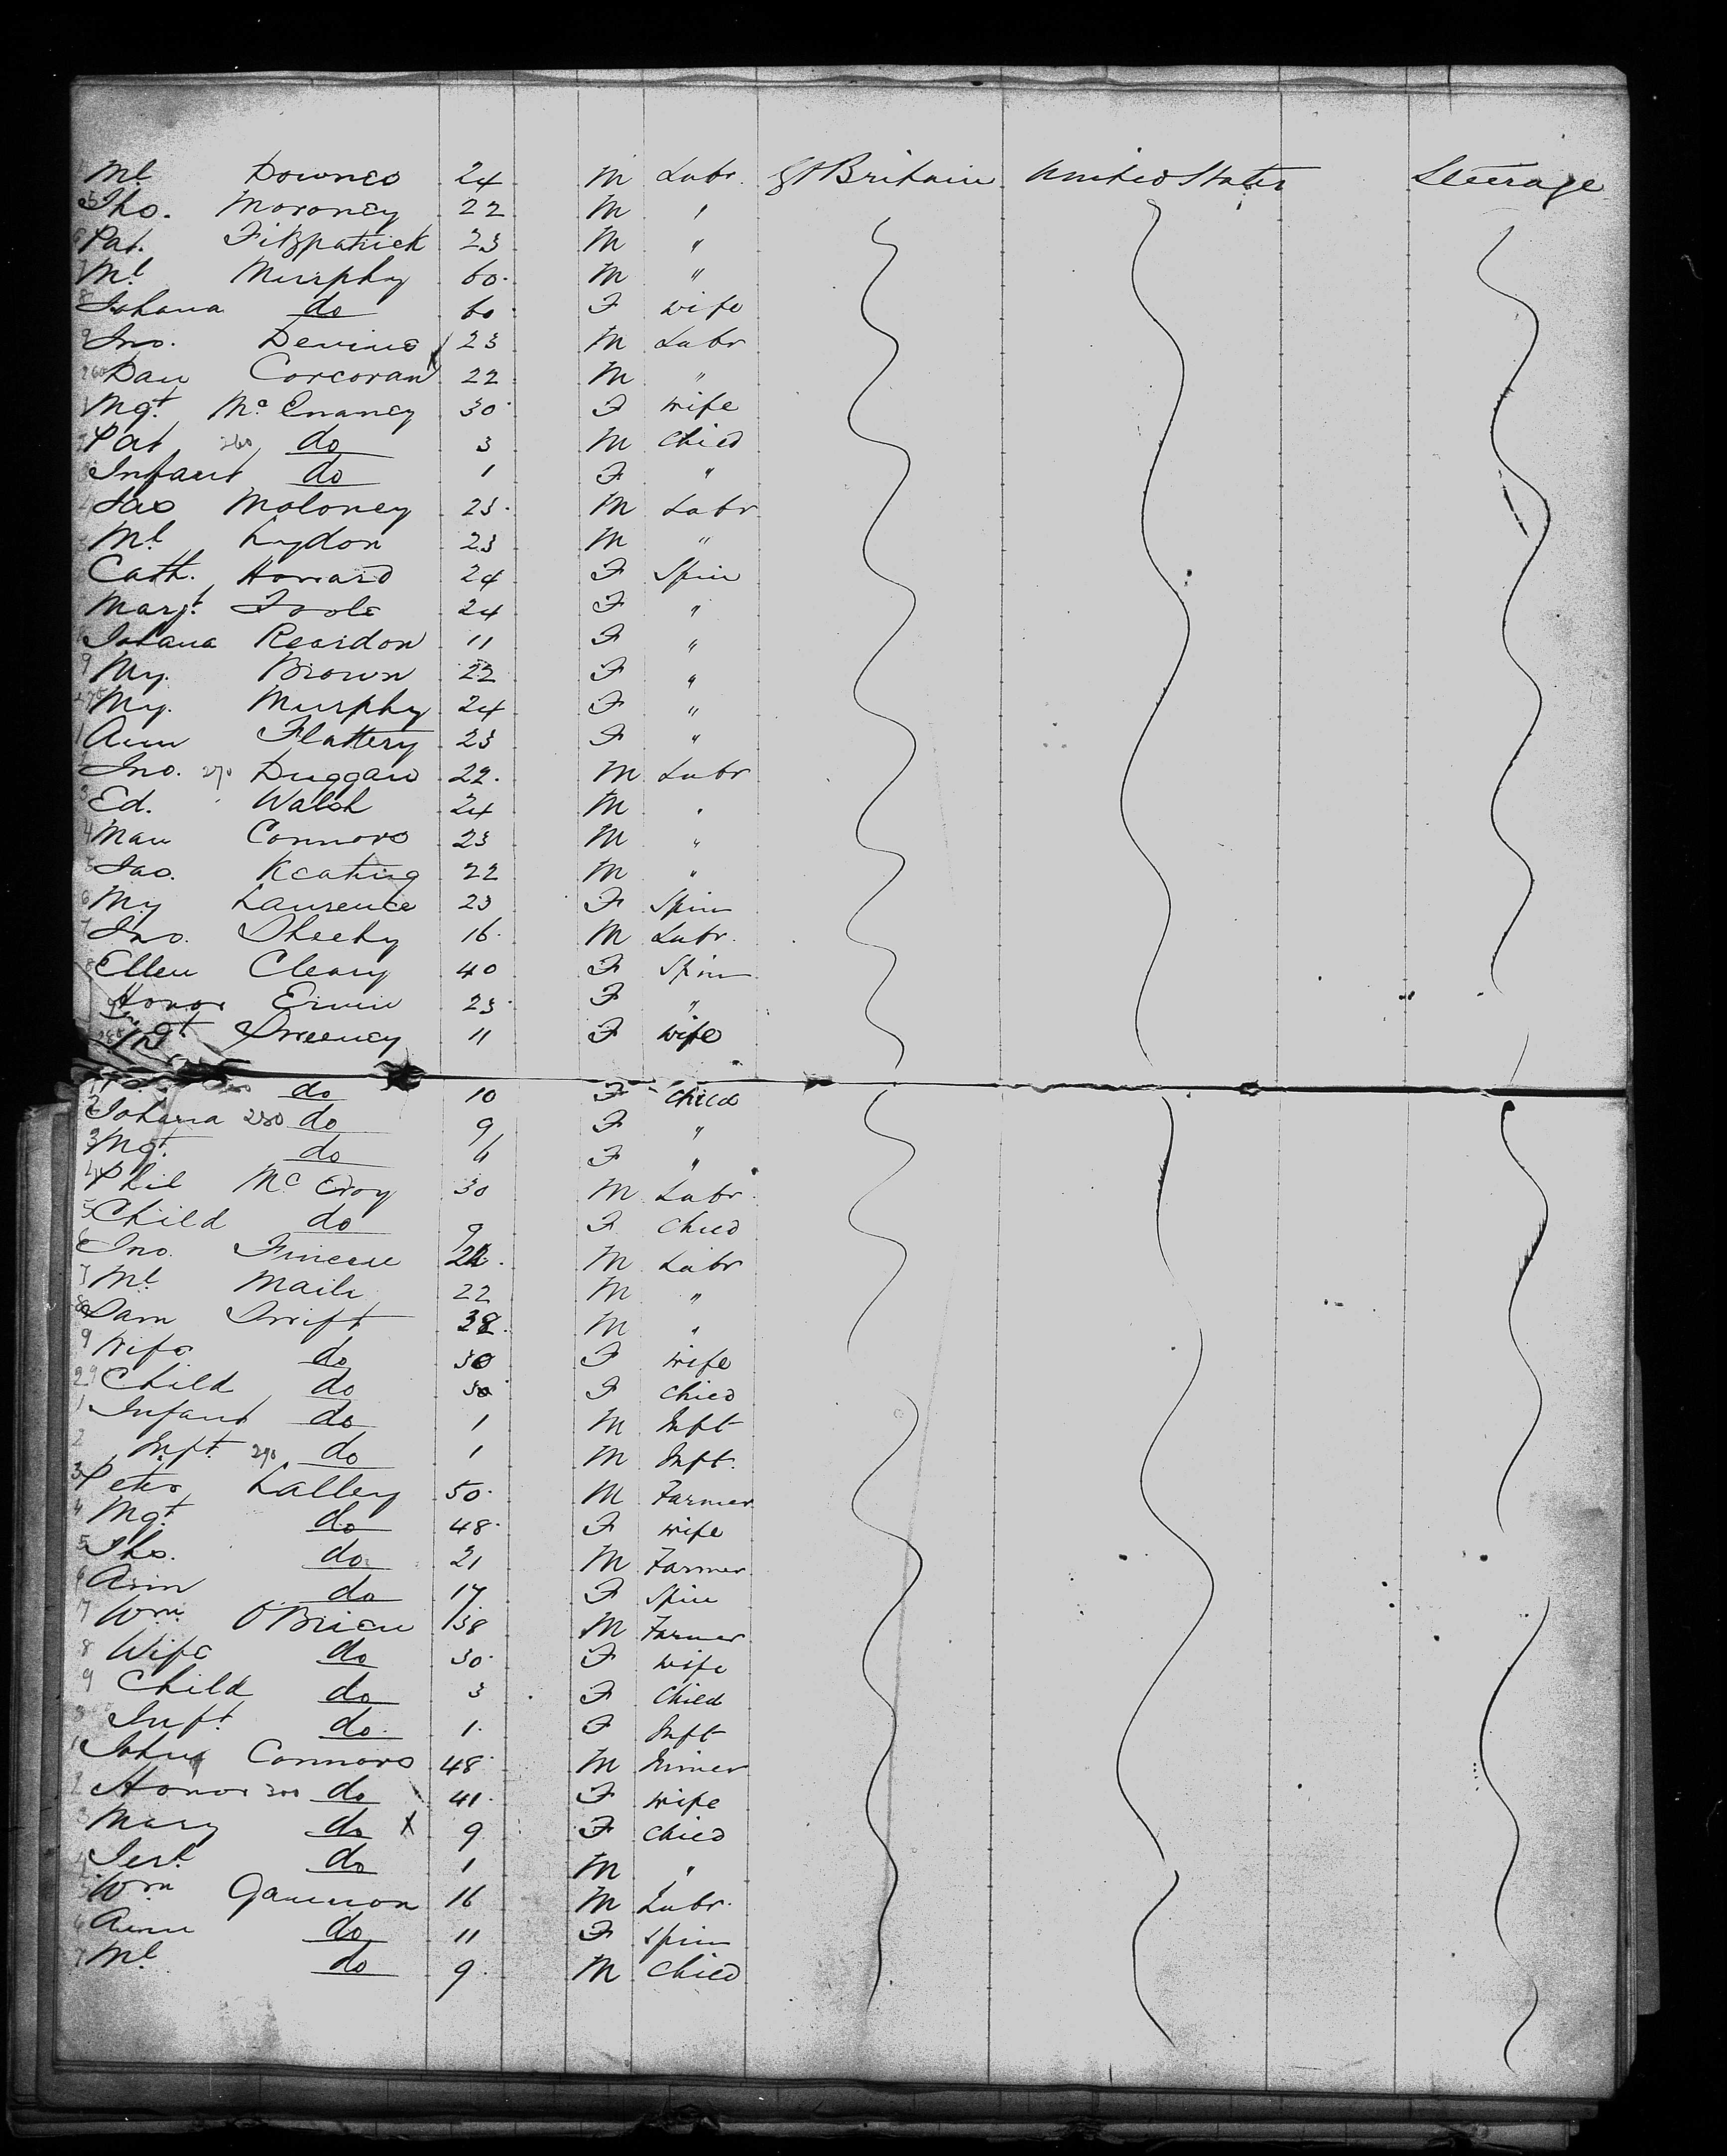 Ml Downes 24 M Labr. Gt Britain United States Steerage
5 Tho. Moroney 22 M "
6 Pat. Fitzpatrick 23 M "
7 Ml Murphy 60 M "
8 Johana do 60 F wife
9 Jno. Devine 23 M Labr
260 Dan Corcoran 22 M "
1 Mgt. Mc Enaney 30 F wife
2 Pat 260 do 3 M Child
Infant do 1 F "
4 Jas Moloney 23 M Labr
Ml Lydon 23 M "
Cath. Howard 24 F Spin
Margt. Toole 24 F "
Johana Reardon 11 F "
9 My. Brown 22 F "
270 My. Murphy 24 F "
1 Ann Flattery 23 F "
2 Jno. 270 Duggan 22. M Labr
3 Ed. Walsh 24 M "
4 Mau Connors 23 M "
5 Jas. Keating 22 M "
6 My Laurence 23 F Spin
7 Jno. Sheehy 16 M Labr.
8 Ellen Cleary 40 F Spin
Honor Erwin 23 F "
Mgt Sweeney 11 F wife
do 10 F Child
2 Johana 280 do 9 F "
3 Mgt. do 6 F "
4 Phil Mc Evoy 30 M Labr.
5 Child do 9 F Child
6 Jno. Finerse M Labr
7 Ml Maili 22 M "
8 Sam Swift 38 M "
9 Wife do 30 F wife
29 Child do F Child
1 Infant do 1 M Inft
2 Inft. 290 do 1 M Inft.
3 Peter Lalley 50 M Farmer
4 Mgt do 48 F wife
5 Tho. do 21 M Farmer
6 Ann do 17 F Spin
7 Wm O'Brien 38 M Farmer
8 Wife do 30 F wife
9 Child do 3 F Child
Inft do 1. F Inft
1 John Connors 48 M
2 Honor 300 do 41 F wife
3 Mary do X 9 F Child
4 Jert. do 1 M "
5 Wm Gammon 16 M Labr.
6 Ann do 11 F Spin
7 Ml do 9 M Child